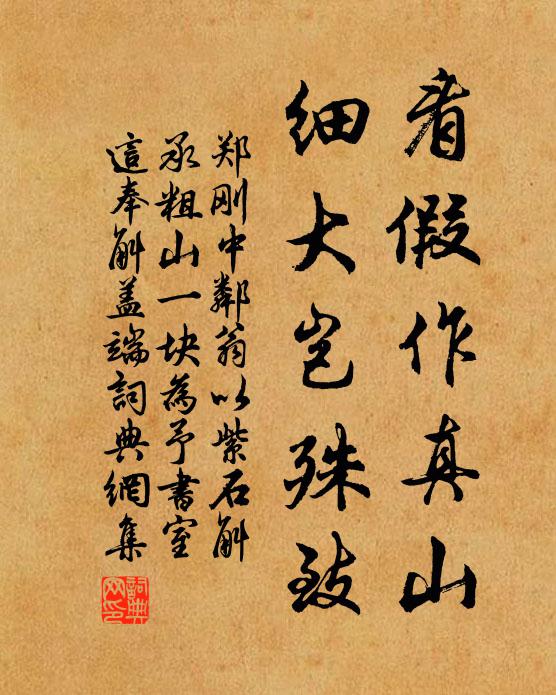 看假作真山
细大岂殊致
郑刚中鄰翁以紫石斛
承粗山一块為予書室
這奉斛盖端詞典網集
詞典网印